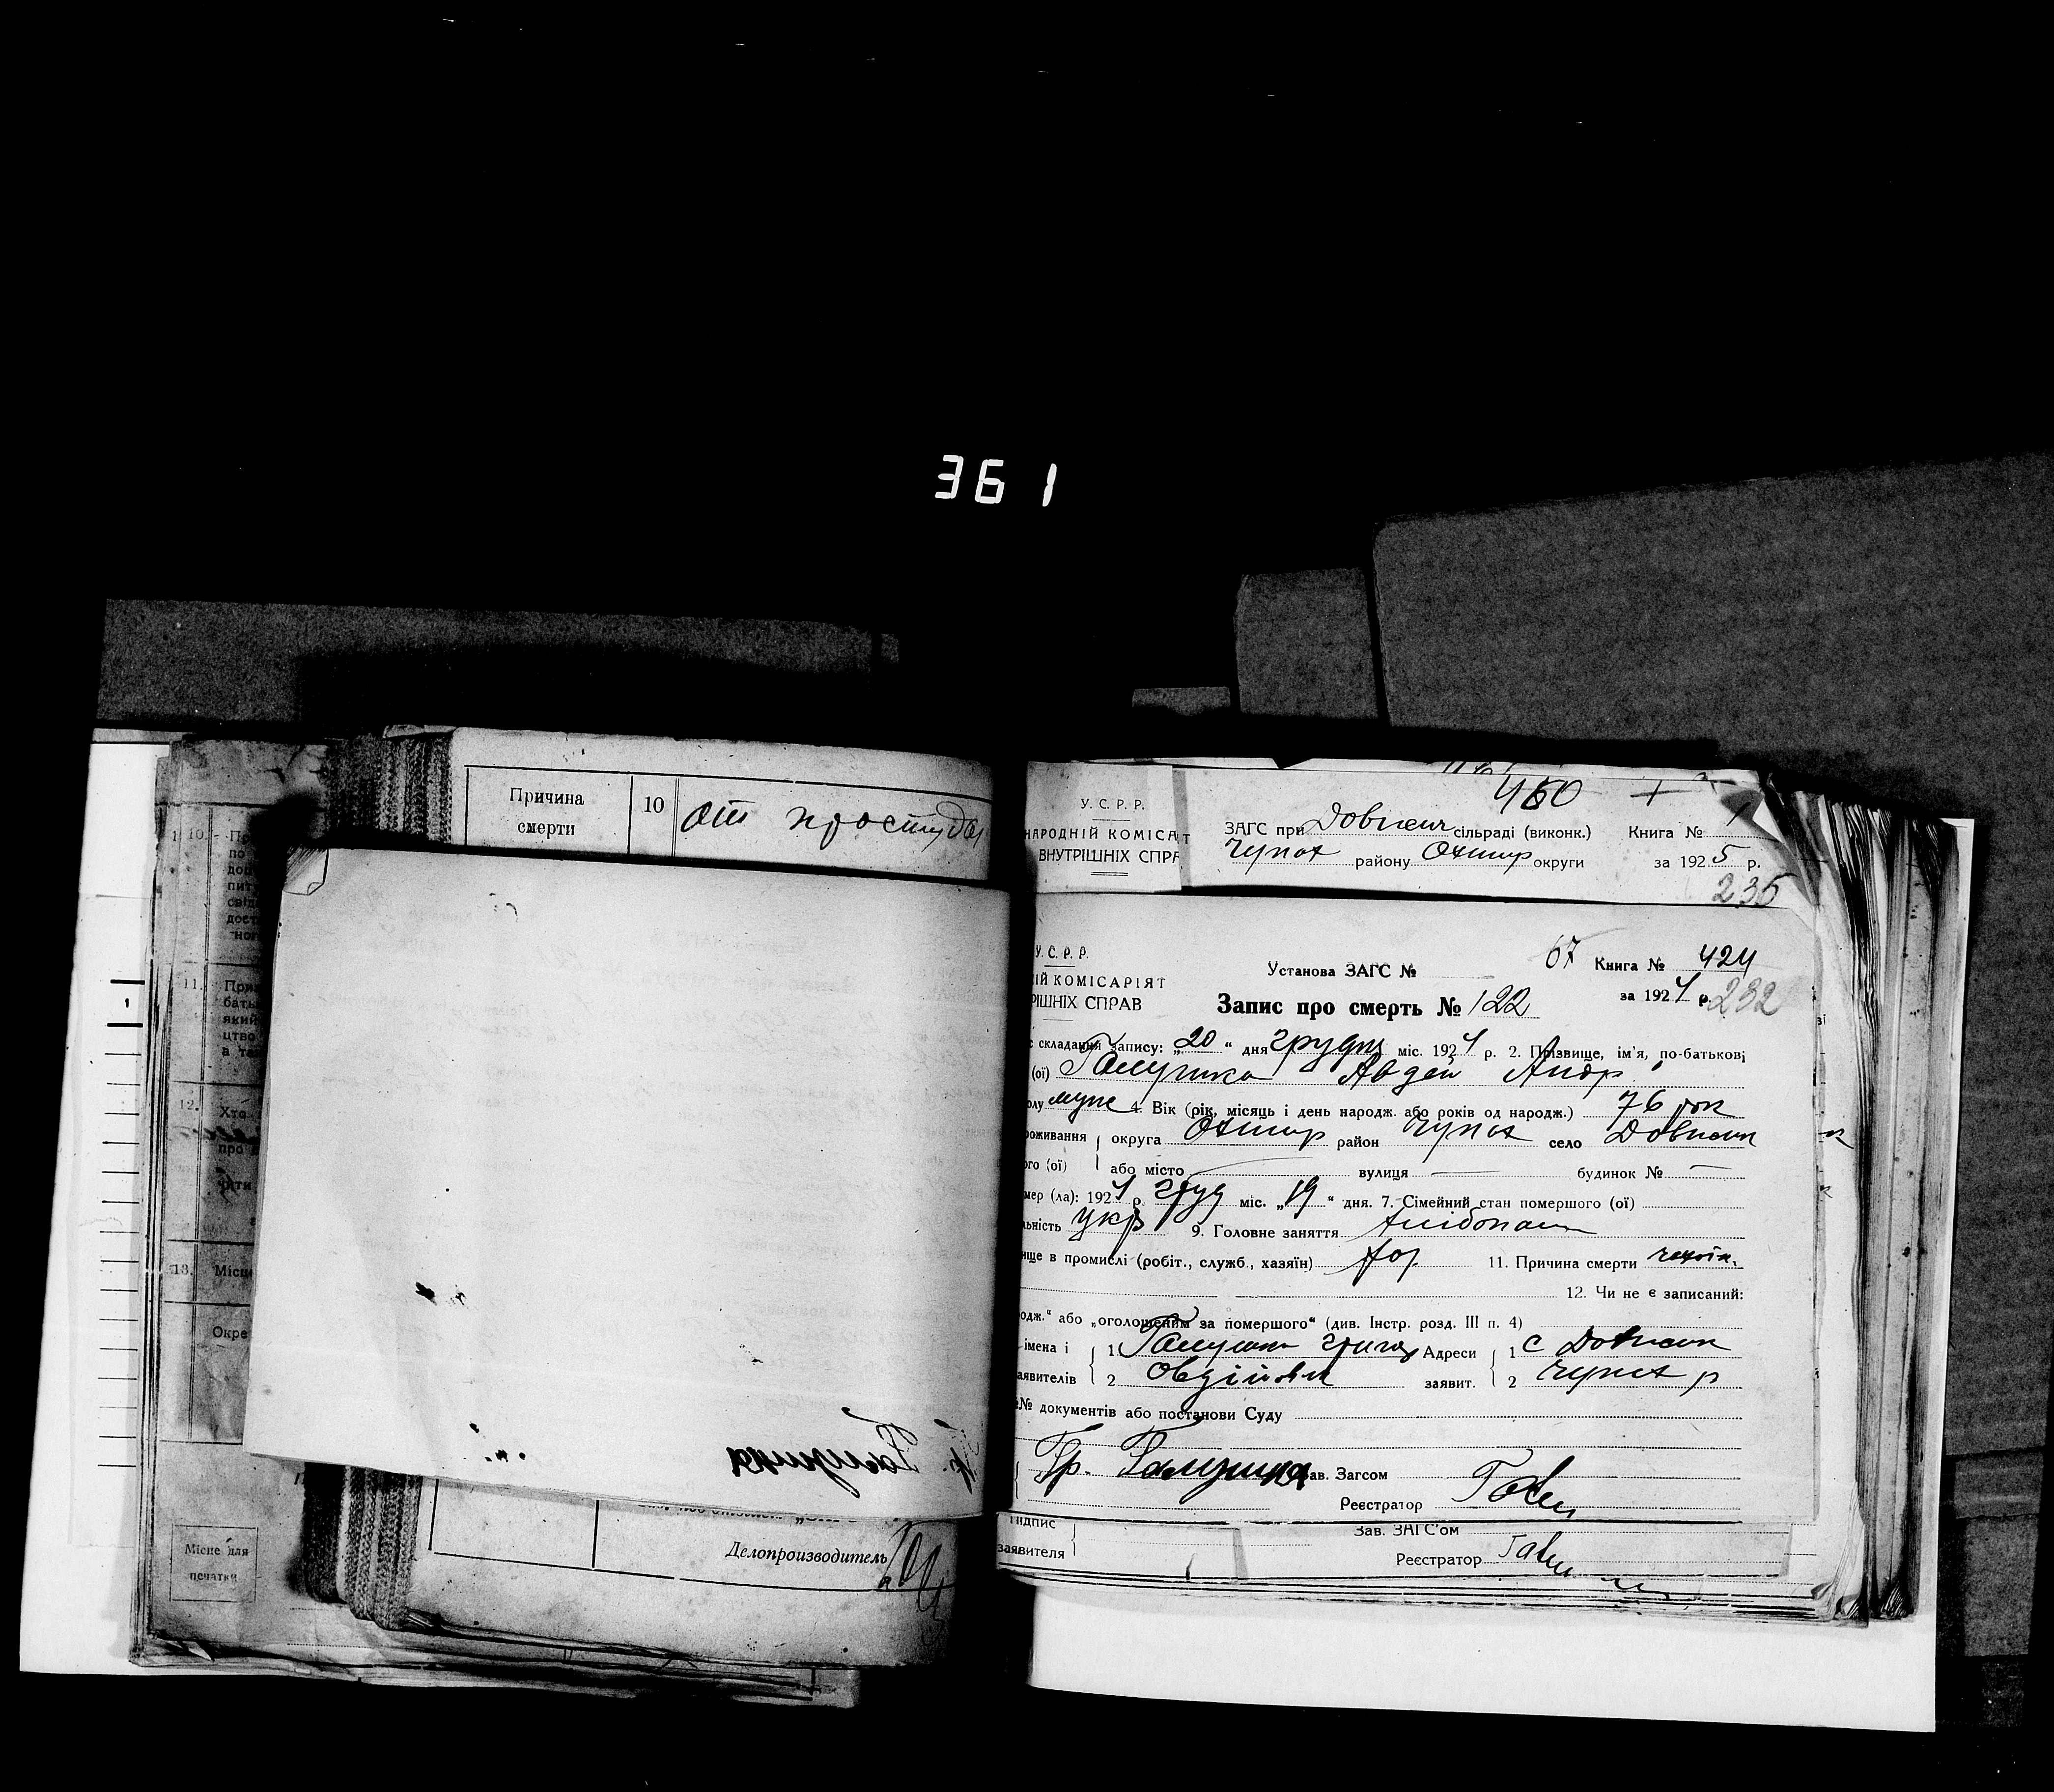 361
10. - Пр
по
доп
пит
свід
дост
ног
11. При
бать
який
цтво
а так
12. Хто
про
чити
13. Місц
Окре
Місце для
печатки
Причина
смерти
10
от простуды
Делопроизводитель
У. С. Р. Р.
НАРОДНІЙ КОМІСАТ
ВНУТРІШНІХ СПР
460
ЗАГС при Довжен сільраді (виконк.) Книга № 1
Чупах району Охтир округи за 1925 р.
235
У. С. Р. Р.
ІЙ КОМІСАРІЯТ
РІШНІХ СПРАВ
Установа ЗАГС № 67 Книга № 424
за 1924 р. 232
Запис про смерть № 122
с складання запису: „20“ дня грудня міс. 1924 р. 2. Прізвище, ім'я, по-батькові
(ої) Галушка Авдей Андр
олу муже 4. Вік (рік, місяць і день народж. або років од народж.) 76 рок
роживання округа Охтир район Чупах село Довжик
ого (ої) або місто вулиця будинок №
мер (ла): 1924 р. груд міс. „19“ дня. 7. Сімейний стан помершого (ої)
льність укр 9. Головне заняття хлібопаш
ище в промислі (робіт., служб., хазяїн) 11. Причина смерти
12. Чи не є записаний:
одж.“ або „оголошеним за помершого“ (див. Інстр. розд. III п. 4)
імена і 1 Галушка Григор Адреси 1 с Довжик
аявителів 2 Овдійович заявит. 2 Чупах р
№№ документів або постанови Суду
Гр. Галушка ав. Загсом
Реєстратор
Підпис
заявителя
Зав. ЗАГС'ом
Реєстратор